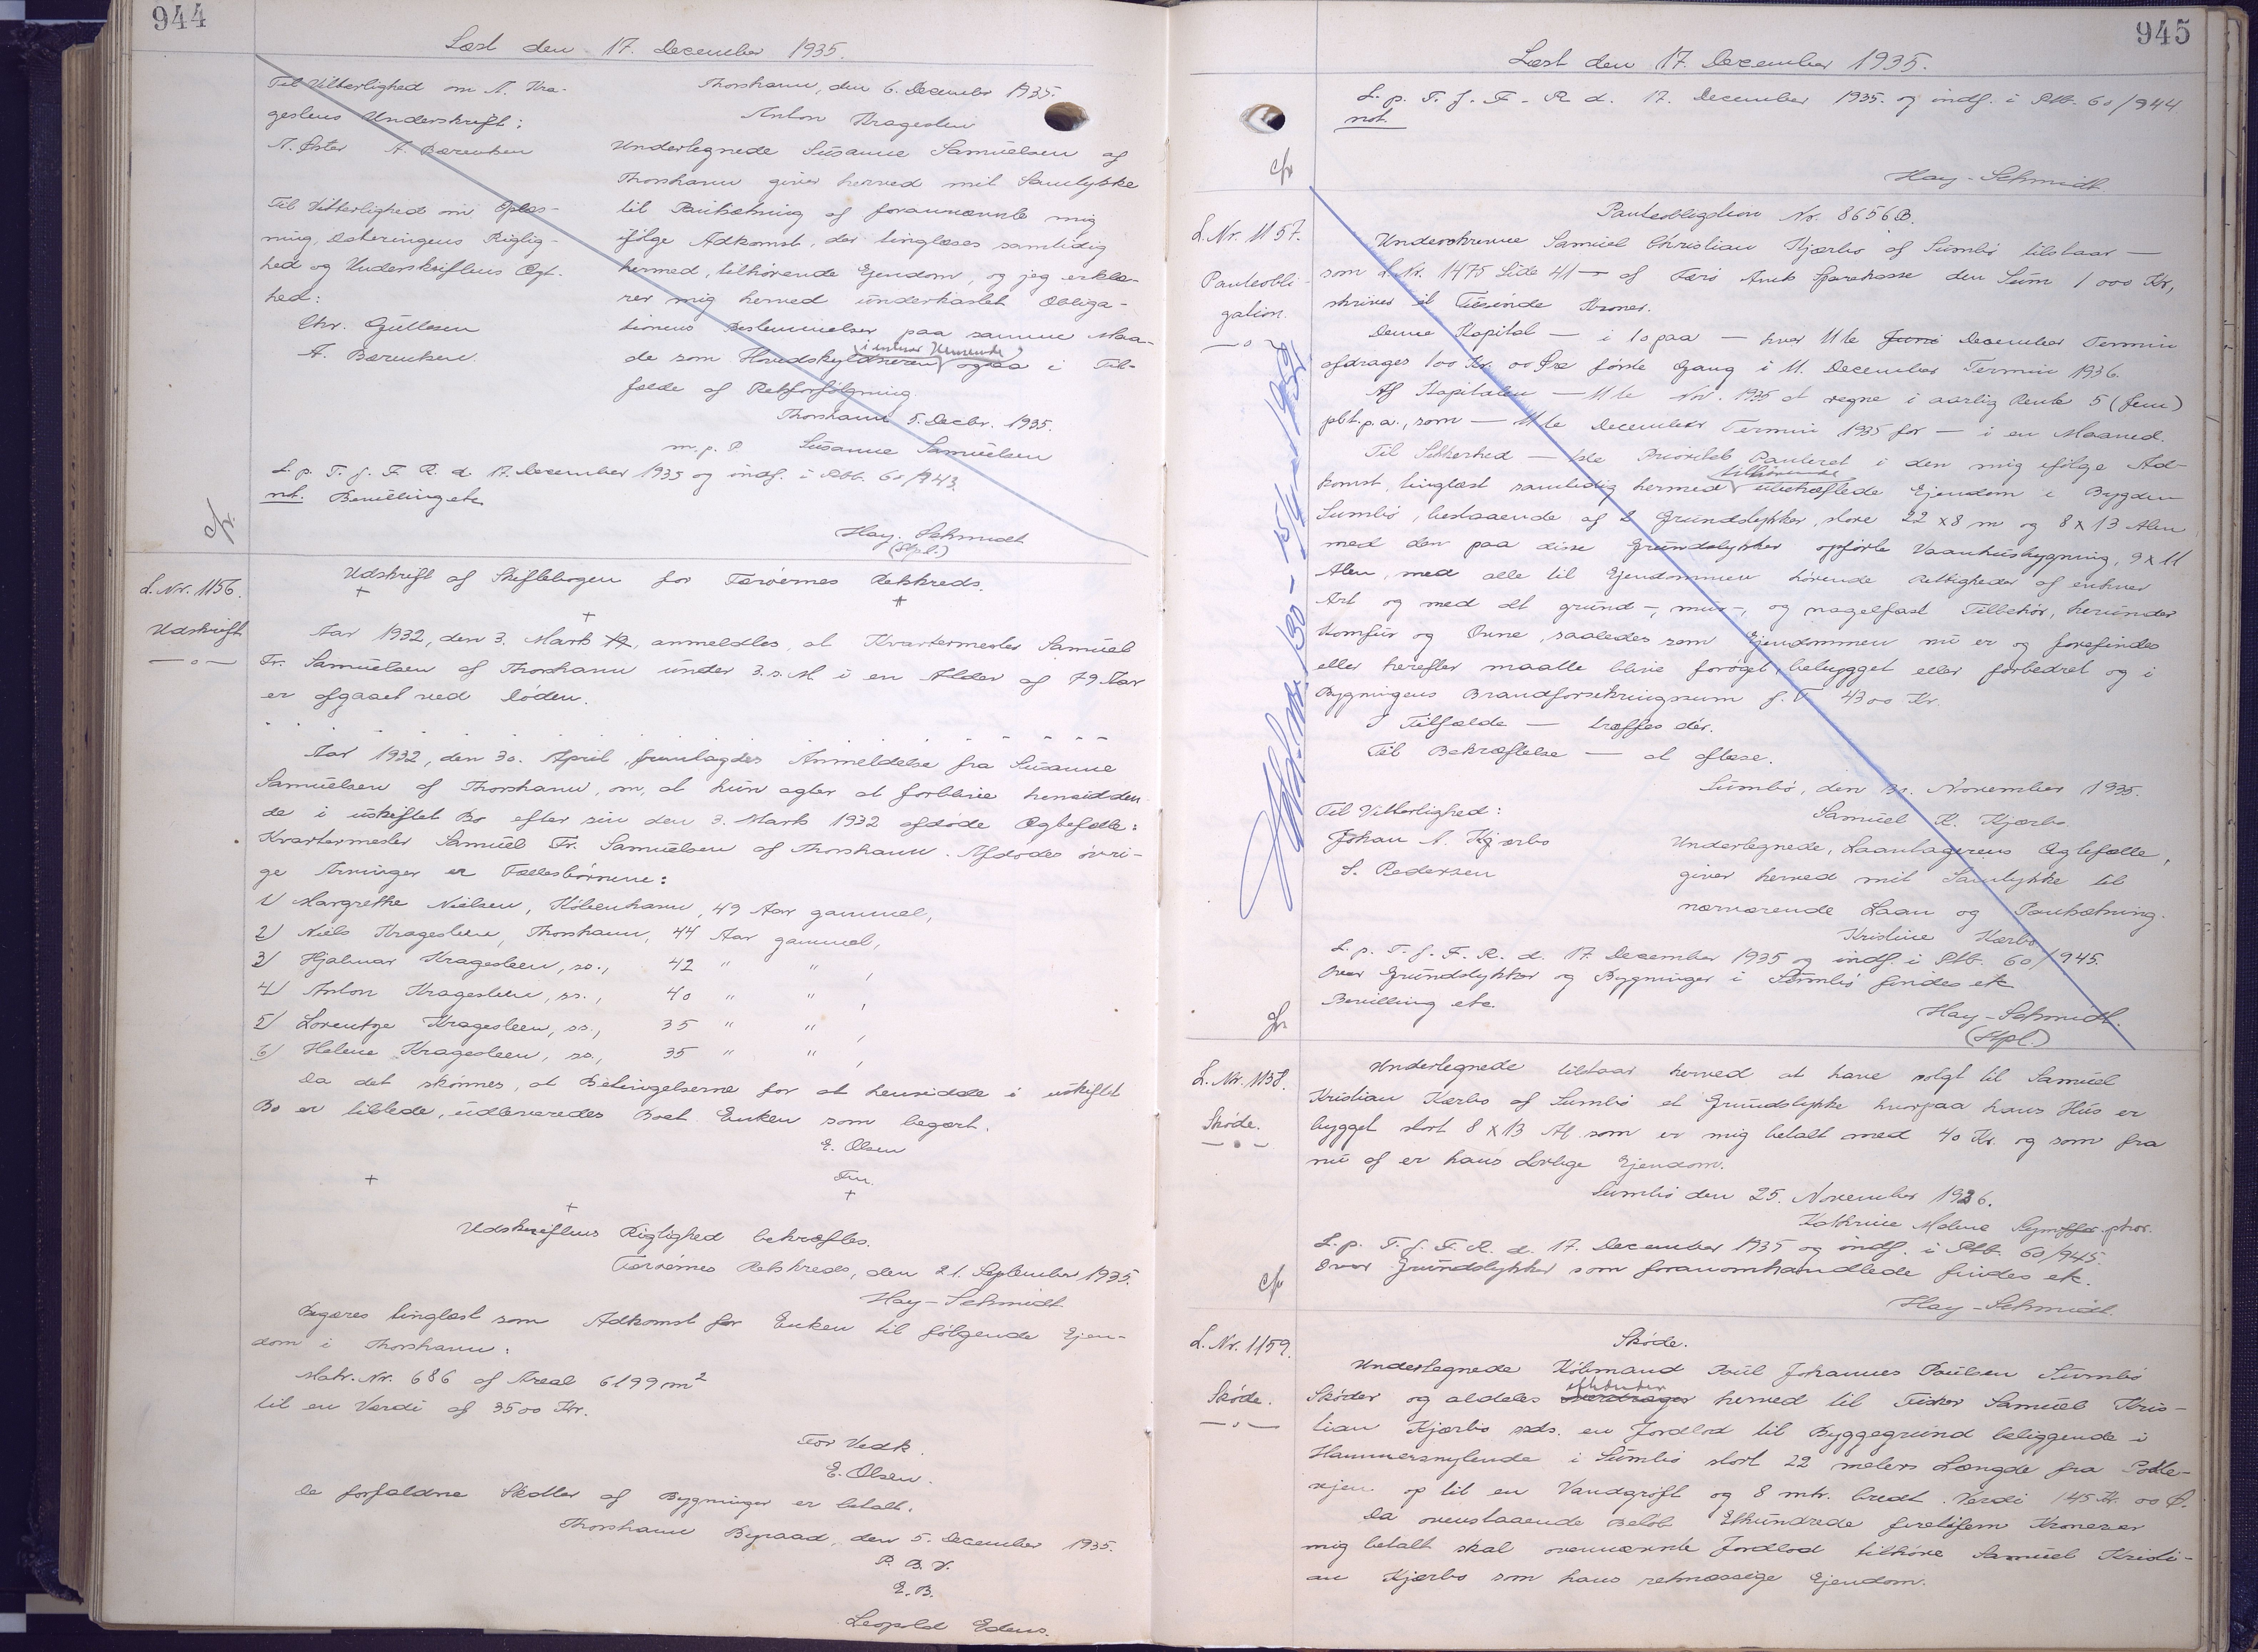 944
Læst den 17. December 1935.
Til Vitterlighed om A. Kra-
gestens Underskrift:
A. Öster A. Bærentsen
Til Vitterlighed om Oplæs-
ning, Dateringens Rigtig-
hed og Underskriftens Ægt-
hed:
Chr. Gullesen
A. Bærentsen.
Thorshavn, den 6. December 1935.
Anton Kragesten
Undertegnede Susanne Samuelsen af
Thorshavn giver herved mit Samtykke
til Pantsætning af forannævnte mig
ifølge Adkomst, der tinglæses samtidig
hermed, tilhørende Ejendom, og jeg erklæ-
rer mig herved underkastet Obliga-
tionens Bestemmelser paa samme Maa-
de som Hovedskyldneren i enhver Henseende ogsaa i Til-
fælde af Retsforfølgning.
Thorshavn 5. Decbr. 1935.
m. p. P. Susanne Samuelsen
L. p. T. f. F. R. d. 17. December 1935 og indf. i Ptb. 60/943.
not. Bevilling etc.
Hay-Schmidt
(Stpl.)
cfr.
L. Nr. 1156.
Udskrift
Udskrift af Skiftebogen for Færøernes Retskreds.
Aar 1932, den 3. Marts 12, anmeldtes, at Kvartermester Samuel
Fr. Samuelsen af Thorshavn under 3. s. M i en Alder af 79 Aar
er afgaaet ved Døden.
Aar 1932, den 30. April, fremlagdes Anmeldelse fra Susanne
Samuelsen af Thorshavn, om, at hun agter at forblive hensidden-
de i uskiftet Bo efter sin den 3. Marts 1932 afdøde Ægtefælle:
Kvartermester Samuel Fr. Samuelsen af Thorshavn. Afdødes øvri-
ge Arvinger er Fællesbørnene:
1) Margrethe Nielsen, København, 49 Aar gammel,
2) Niels Kragesteen, Thorshavn, 44 Aar gammel,
3) Hjalmar Kragesteen, ss., 42 " " ,
4) Anton Kragesteen, ss., 40 " " ,
5) Lorentze Kragesteen, ss., 35 " " ,
6) Helene Kragesteen, ss., 35 " " ,
Da det skønnes, at Betingelserne for at hensidde i uskiftet
Bo er tilstede, udleveredes Boet Enken som begært.
E. Olsen
Fm.
Udskriftens Rigtighed bekræftes.
Færøernes Retskreds, den 21. September 1935.
Hay-Schmidt
Begæres tinglæst som Adkomst for Enken til følgende Ejen-
dom i Thorshavn:
Matr. Nr. 686 af Areal 6199 m²
til en Værdi af 3500 Kr.
For Vedk.
E. Olsen.
De forfaldne Skatter af Bygninger er betalt.
Thorshavn Byraad, den 5. December 1935.
P. B. V.
E. B.
Leopold Edens.
945
Læst den 17. December 1935.
L. p. T. f. F. R d. 17. December 1935. og indf. i Ptb. 60/944
not.
cfr
Hay-Schmidt.
L. Nr. 1157.
Panteobli-
gation.
Panteobligation Nr. 8656B.
Underskrevne Samuel Christian Kjærbo af Sumbø tilstaar —
som L. Nr. 1475 Side 41 — af Færø Amts Sparekasse den Sum 1000 Kr,
skriver et Tusinde Kroner.
Denne Kapital — i 10 paa — hver 11te Juni December Termin
afdrages 100 Kr. 00 Øre første Gang i 11. December Termin 1936.
Af Kapitalen — 11te Nov. 1935 at regne i aarlig Rente 5 (fem)
pCt. p. a., som — 11te December Termin 1935 for — i en Maaned.
Til Sikkerhed — 1ste Prioritets Panteret i den mig ifølge Ad-
komst, tinglæst samtidig hermed tilhørende ubehæftede Ejendom i Bygden
Sumbø, bestaaende af 2 Grundstykker, store 22 x 8 m og 8 x 13 Alen
med den paa disse Grundstykker opførte Vaanhusbygning, 9 x 11
Alen, med alle til Ejendommen hørende Rettigheder af enhver
Art og med alt grund-, mur-, og nagelfast Tilbehør, herunder
Komfur og Ovne, saaledes som Ejendommen nu er og forefindes
eller herefter maatte blive forøget, bebygget eller forbedret og i
Bygningens Brandforsikringssum f. T. 4300 Kr.
I Tilfælde — træffes dér.
Til Bekræftelse — at aflæse.
Sumbø, den 30. November 1935.
Samuel K. Kjærbo
Til Vitterlighed:
Johan A. Kjærbo
S. Pedersen
Undertegnede, Laantagerens Ægtefælle,
giver herved mit Samtykke til
nærværende Laan og Pantsætning.
Kristine Kærbo
L. p. T. f. F. R. d. 17. December 1935 og indf. i Ptb. 60/945.
Over Grundstykker og Bygninger i Sumbø findes etc
Bevilling etc.
Hay-Schmidt.
(Stpl.)
cfr
L. Nr. 1158.
Skøde.
Undertegnede tilstaar herved at have solgt til Samuel
Kristian Kærbo af Sumbø et Grundstykke hvorpaa hans Hus er
bygget stort 8 x 13 Al. som er mig betalt med 40 Kr. og som fra
nu af er hans Lovlige Ejendom.
Sumbø den 25. November 1926.
Kathrine Malene
L. p. T. f. F. R. d. 17. December 1935 og indf. i Ptb. 60/945.
Over Grundstykker som foranomhandlede findes etc.
cfr
Hay-Schmidt.
L. Nr. 1159.
Skøde.
Skøde.
Undertegnede Købmand Poul Johannes Poulsen Sumbø
Skøder og aldeles afhænder overdrager herved til Fisker Samuel Kris-
tian Kjærbo ssds. en Jordlod til Byggegrund beliggende i
Hammersnylende i Sumbø stort 22 meters Længde fra
op til en Vandgrøft og 8 mtr. bredt. Værdi 145 Kr. 00 Ø.
Da ovenstaaende Beløb Ethundrede firetifem Kroner er
mig betalt skal ovennævnte Jordlod tilhøre Samuel Kristi-
an Kjærbo som hans retmæssige Ejendom.